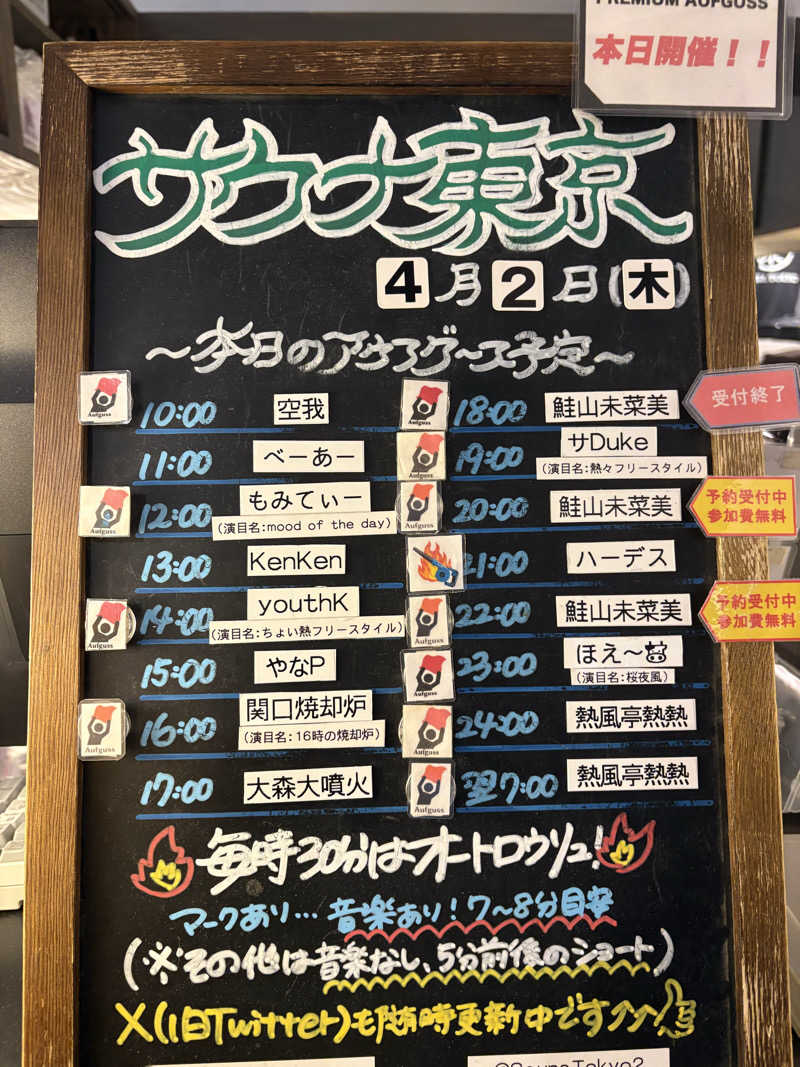 PREMIUM AUFGUSS
本日開催！！
サウナ東京
4月2日(木)
～本日のアウフグース予定～
Aufguss 10:00 空我
11:00 べーあー
Aufguss 12:00 もみてぃー
(演目名:mood of the day)
13:00 KenKen
Aufguss 14:00 youthK
(演目名:ちょい熱フリースタイル)
15:00 やなP
Aufguss 16:00 関口焼却炉
(演目名:16時の焼却炉)
17:00 大森大噴火
Aufguss 18:00 鮭山未菜美 受付終了
Aufguss 19:00 サDuke
(演目名:熱々フリースタイル)
Aufguss 20:00 鮭山未菜美 予約受付中
参加費無料
21:00 ハーデス
Aufguss 22:00 鮭山未菜美 予約受付中
参加費無料
Aufguss 23:00 ほえ～
(演目名:桜夜風)
Aufguss 24:00 熱風亭熱熱
Aufguss 翌7:00 熱風亭熱熱
毎時30分はオートロウリュ!
マークあり…音楽あり！7～8分目安
(※その他は音楽なし、5分前後のショート)
X(旧Twitter)も随時更新中です↑↑